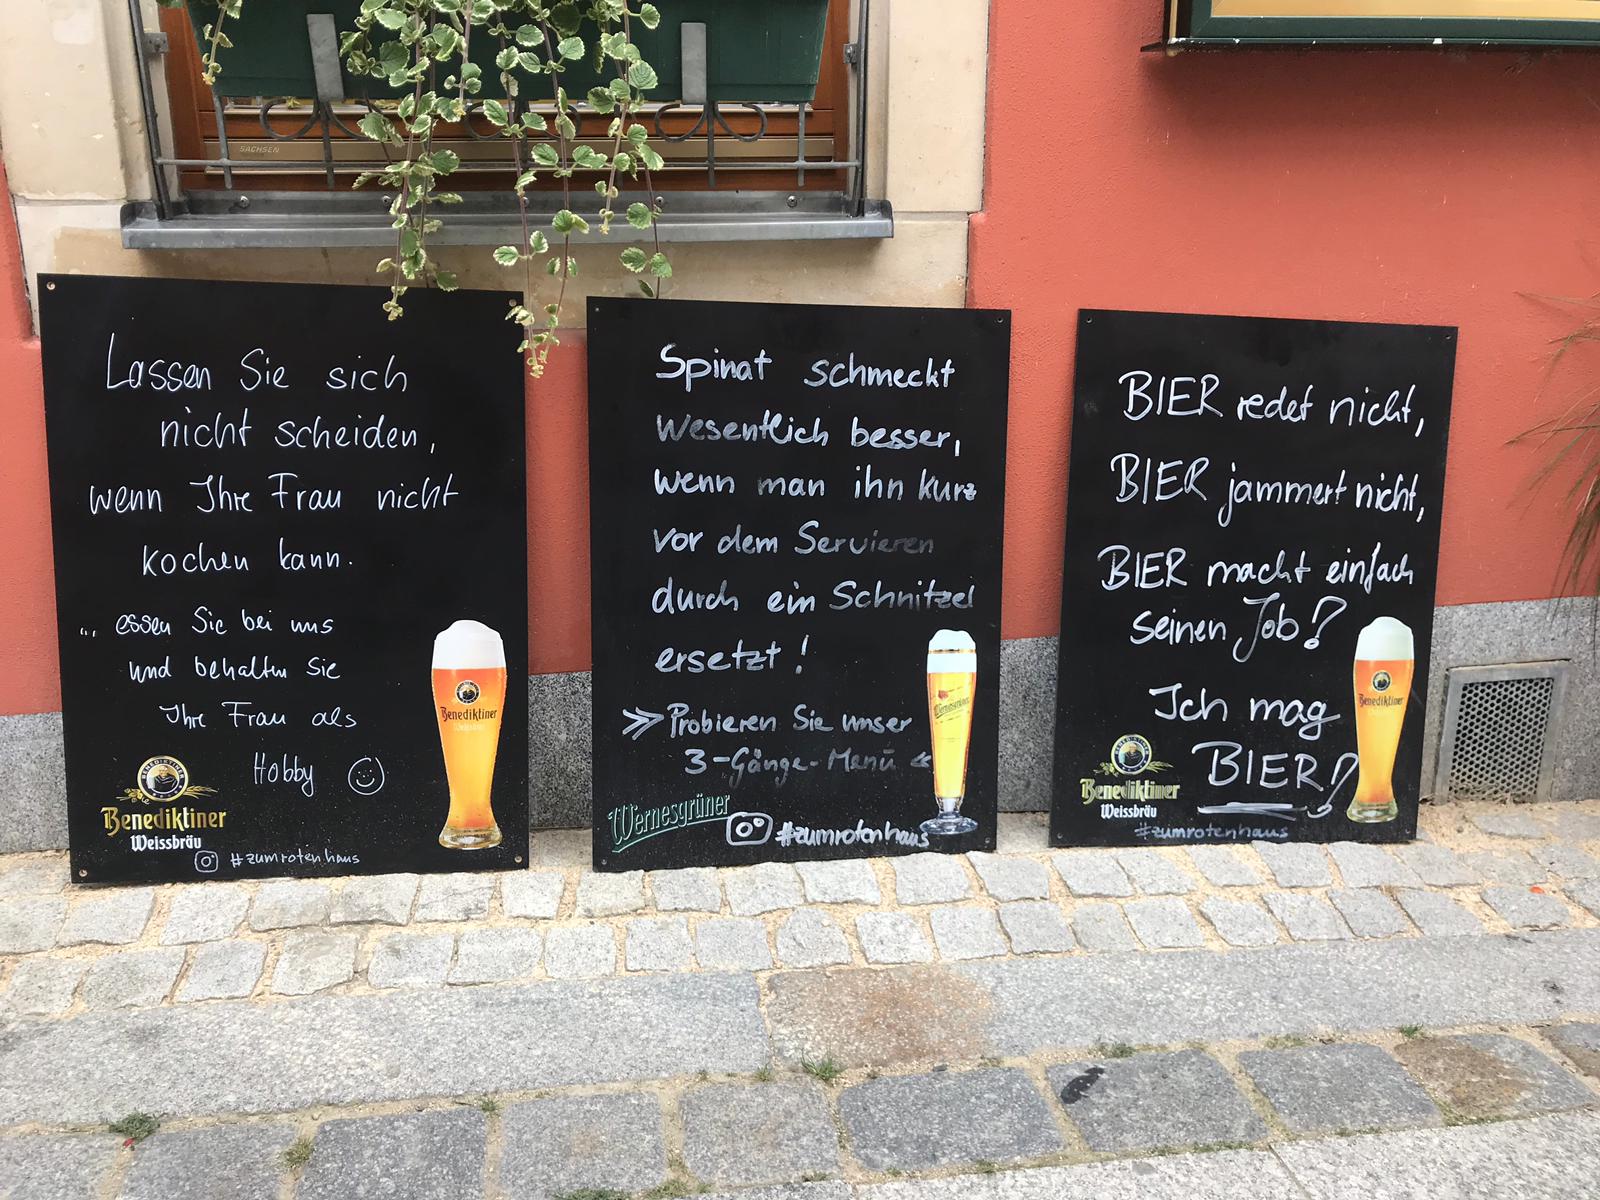 SACHSEN
Lassen Sie sich
nicht scheiden,
wenn Ihre Frau nicht
kochen kann.
... essen Sie bei uns
und behalten Sie
Ihre Frau als
Hobby
Benediktiner
BENEDIKTINER
Benediktiner
Weissbräu
#zumrotenhaus
Spinat schmeckt
wesentlich besser,
wenn man ihn kurz
vor dem Servieren
durch ein Schnitzel
ersetzt!
>> Probieren Sie unser
3-Gänge-Menü <<
Wernesgrüner
Wernesgrüner
#zumrotenhaus
BIER redet nicht,
BIER jammert nicht,
BIER macht einfach
seinen Job!
Ich mag
BIER!
Benediktiner
BENEDIKTINER
Benediktiner
Weissbräu
#zumrotenhaus